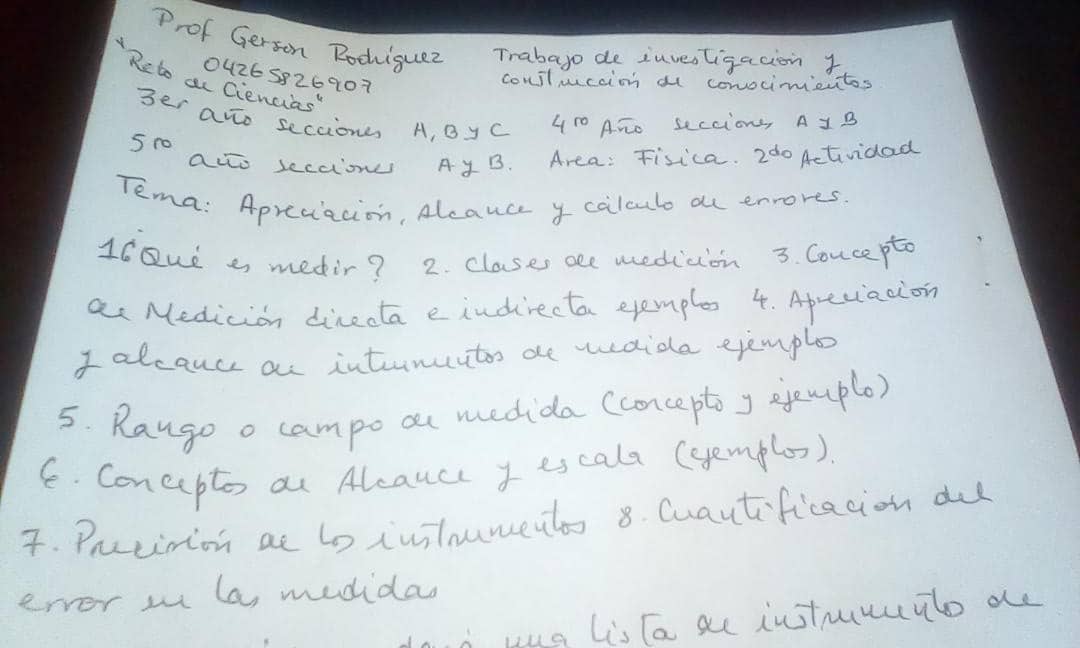 Prof Gerson Rodríguez Trabajo de investigación y
04265826907 construcción de conocimientos.
"Reto de Ciencias"
3er año secciones A, B y C 4to Año secciones A y B
5to año secciones A y B. Area: Física. 2do Actividad
Tema: Apreciación, Alcance y cálculo de errores.
1¿Qué es medir? 2. Clases de medición 3. Concepto
de Medición directa e indirecta ejemplos 4. Apreciación
y alcance de intrumentos de medida ejemplos
5. Rango o campo de medida (concepto y ejemplo)
6. Conceptos de Alcance y escala (ejemplos).
7. Precisión de los instrumentos 8. Cuantificacion del
error en las medidas
una lista de instrumento de